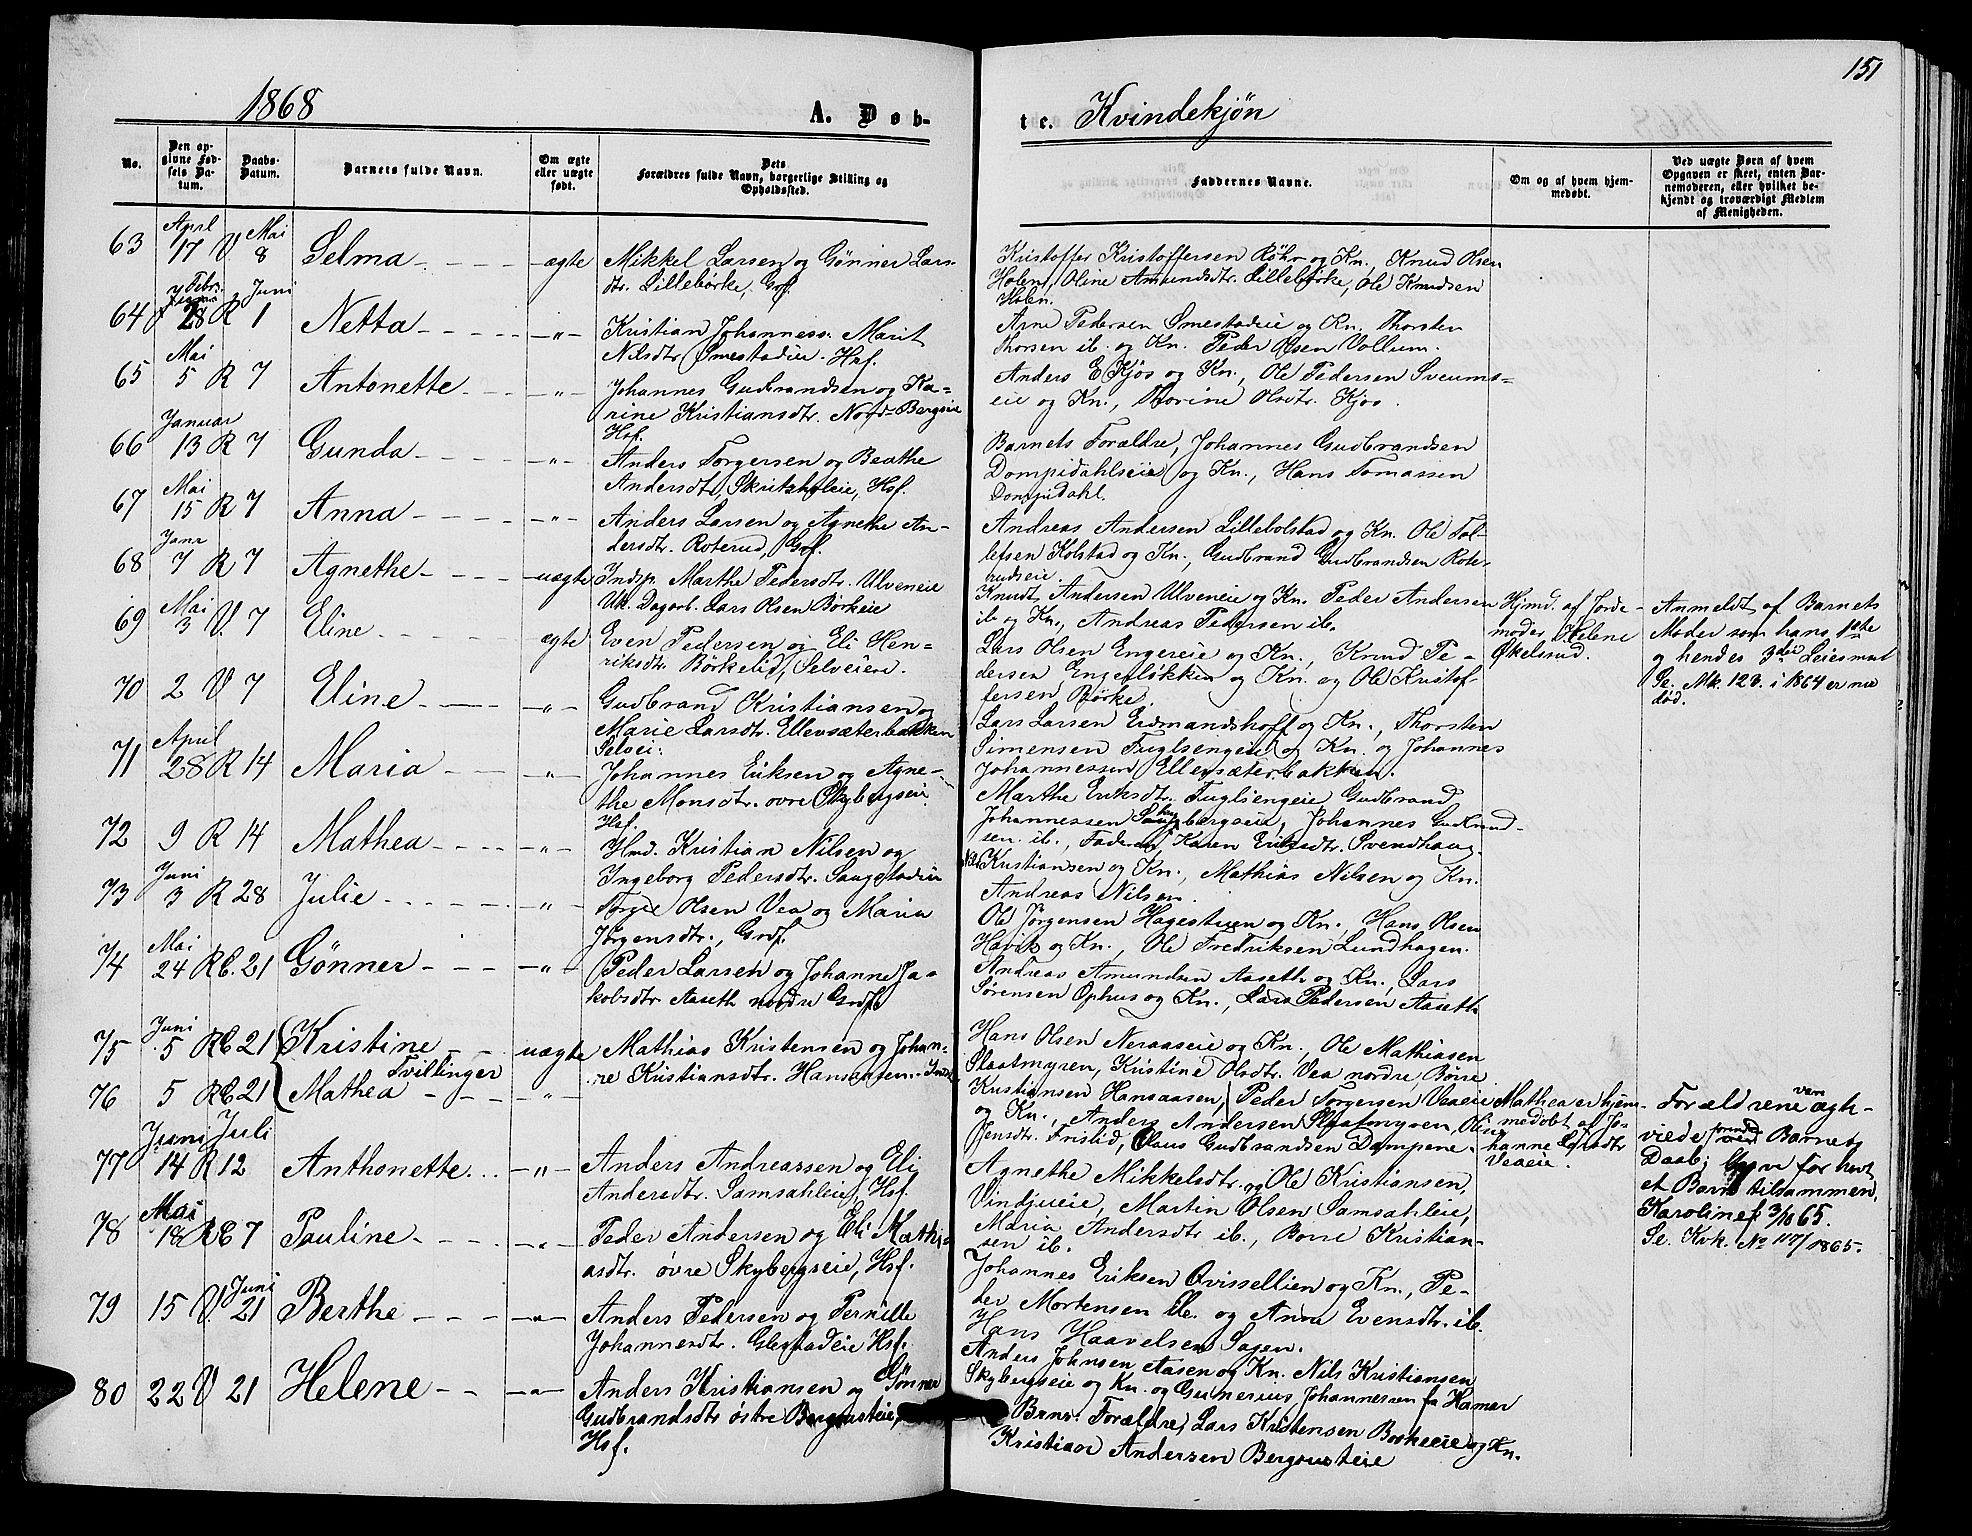 151
1868
A. Døb-
te. Kvindekjøn
No.
Den op-
givne Fød-
sels Da-
tum.
Daabs-
Datum.
Barnets fulde Navn.
Om ægte
eller uægte
født.
Dets
Forældres fulde Navn, borgerlige Stilling og
Opholdssted.
Faddernes Navne.
Om og af hvem hjem-
medøbt.
Ved uægte Børn af hvem
Opgaven er skeet, enten Bar-
nemoderen, eller hvilket be-
kjendt og troværdigt Medlem
af Menigheden.
April Mai
63 17 V 8 Selma - ægte
Mikkel Larsen og Gønner Lars-
dtr. Lillebørke, Gbf.
Kristoffer Kristoffersen Röhr og Kn., Knud Olsen
Holen, Oline Amundsdtr. Lillebørke, Ole Knudsen
Holen.
Febr. Juni
64 28 R 1 Netta - " -
Kristian Johanness. Marit
Nilsdtr. Smestadeie. Hsf.
Arne Pedersen Smestadeie og Kn. Thorsten
Thorsen ib. og Kn. Peder Olsen Vollum.
Mai
65 5 R 7 Antonette - " -
Johannes Gudbrandsen og Ka-
rine Kristiansdtr. Nord-Bergseie
Hsf.
Anders E. Kjos og Kn., Ole Pedersen Sveums-
eie og Kn., Thorine Olsdtr. Kjos.
Januar
66 13 R 7 Gunda - " -
Anders Torgersen og Beathe
Andersdtr., Hsf.
Barnets Forældre, Johannes Gudbrandsen
Dompidahlseie og Kn., Hans Tomassen
Dompidahl.
Mai
67 15 R 7 Anna - " -
Anders Larsen og Agnethe An-
dersdtr. Roterud, Gbf.
Andreas Andersen Lillebolstad og Kn. Ole Tol-
lefsen Kolstad og Kn., Gudbrand Gudbrandsen Rote-
rudseie.
Janr
68 7 R 7 Agnethe - uægte
Indsp. Marthe Pedersdtr. Ulveneie
Uk. Dagarb. Lars Olsen Börkeie
Knudt Andersen Ulveneie og Kn. Peder Andersen
ib og Kn., Andreas Pedersen ib.
Hjmd. af Jorde-
moder Helene
Økelsrud.
Anmeldt af Barnets
Moder som hans 1ste
og hendes 3die Leiermaal
Se. Mk. 128. i 1864 er nu
død.
Mai
69 3 V. 7 Eline - ægte
Even Pedersen og Eli Hen-
riksdtr. Börkelid, Selveier.
Lars Olsen Engereie og Kn., Knud Pe-
dersen Engerlökken og Kn. og Ole Kristof-
fersen Börke.
70 2 V 7 Eline - " -
Gudbrand Kristiansen og
Marie Larsdtr. Ellevsæterbakken
Selvei.
Lars Larsen Erdmandshoff og Kn., Thorsten
Simensen Fuglsengeie og Kn. og Johannes
Johannessen Ellevsæterbakken.
April
71 28 R 14 Maria - " -
Johannes Eriksen og Agne-
the Monsdtr. øvre Skybergseie.
Hsf.
Marthe Eriksdtr. Fuglsengeie, Gudbrand
Johannessen Skybergseie, Johannes Knud-
sen ib., Faderen, Karen Eriksdtr. Svendhaug.
72 9 R 14 Mathea - " -
Hmd. Kristian Nilsen og
Ingeborg Pedersdtr. Saugstadeie
Nils Kristiansen og Kn., Mathias Nilsen og Kn.
Andreas Nilsen.
Juni
73 3 R 28 Julie - " -
Torger Olsen Vea og Maria
Jørgensdtr., Grdf.
Ole Jørgensen Hagestuen og Kn., Hans Olsen
Havik og Kn., Ole Fredriksen Lundhagen.
Mai
74 24 RC. 21 Gønner - " -
Peder Larsen og Johanne Ja-
kobsdtr. Aaseth nordre Grdf.
Andreas Amundsen Aaseth og Kn., Lars
Sørensen Ophus og Kn., Lars Pedersen Aaseth
Juni
75 5 RC 21 Kristine - uægte
Tvillinger
76 5 RC 21 Mathea - " -
Mathias Kristensen og Johan-
ne Kristiansdtr. Hansaasen.
Hans Olsen Neraaseie og Kn., Ole Mathiasen
Slaatmyren, Kristine Olsdtr. Vea nordre, Børre
Kristiansen Hansaasen, Peder Torgersen Veaeie
og Kn., Anders Andersen Slaatmyren, Oline
Jensdtr. Fristid, Claus Gudbrandsen Dampene.
Mathea er hjem-
medøbt af Jo-
hanne Larsdtr
Veaeie.
Forældrene vare ægte-
viede forud Barnets
Daab; have før havt
et Barn tilsammen,
Karoline f 3/10 65.
Se. Kvk. No 117/1865.
Juni Juli
77 14 R 12 Anthonette - " -
Anders Andreassen og Eli
Andersdtr. Samsahleie, Hsf.
Agnethe Mikkelsdtr. og Ole Kristiansen,
Vindjueie, Martin Olsen Samsahleie,
Maria Andersdtr ib., Børre Kristian-
sen ib.
Mai
78 18 RC 7 Pauline - " -
Peder Andersen og Eli Mathi-
asdtr. øvre Skybergseie, Hsf.
Johannes Eriksen Qvissellien og Kn., Pe-
der Mortensen ib. og Anna Evensdtr. ib.
Hans Haavelsen Sagen.
Juni
79 15 V. 21 Berthe - " -
Anders Pedersen og Pernille
Johannesdtr. Glestadeie Hsf.
Anders Johnsen Aasen og Kn. Nils Kristiansen
Skybergseie og Kn. og Gunerius Johannesen fra Hamar
80 22 V 21 Helene - " -
Anders Kristiansen og Gønner
Gudbrandsdtr østre Bergsusteie,
Hsf.
Brns. Forældre, Lars Kristensen Borkeeie og Kn.
Kristian Andersen Bergsusteie